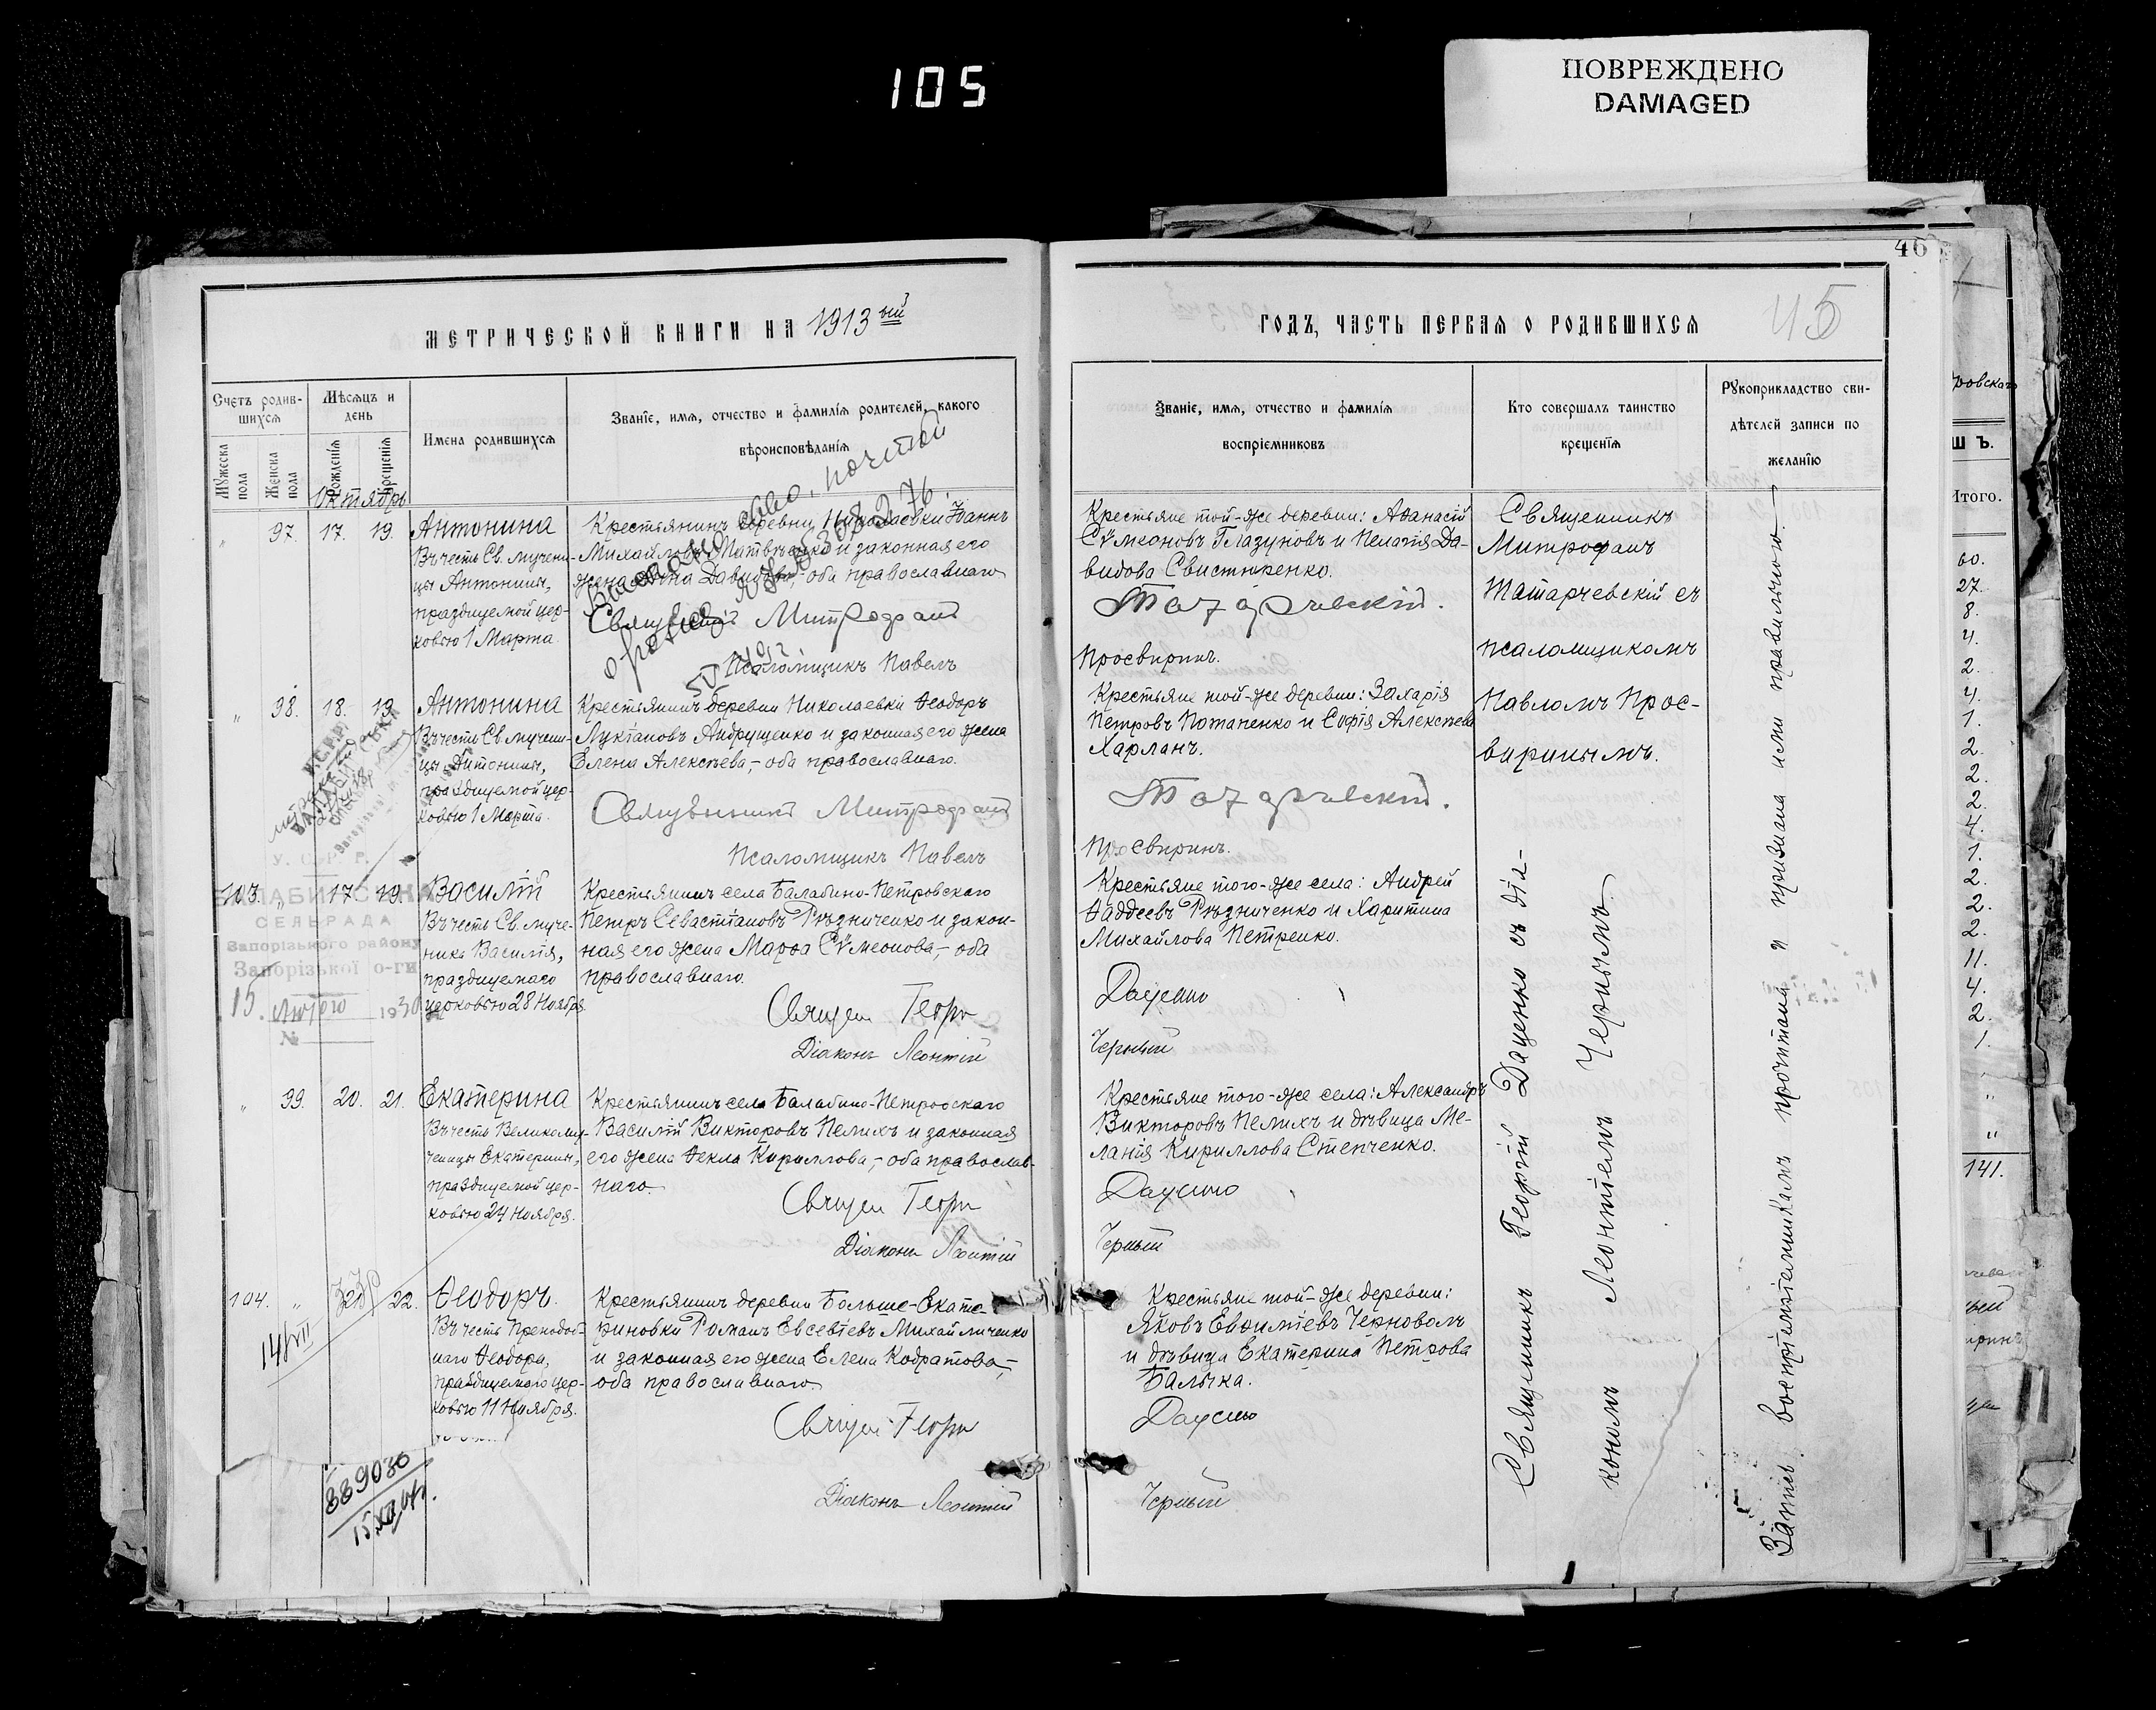 105
ПОВРЕЖДЕНО
DAMAGED
46
45
МЕТРИЧЕСКОЙ КНИГИ НА 1913 ый
ГОДЪ, ЧАСТЬ ПЕРВАЯ О РОДИВШИХСЯ
Счетъ родив-
шихся
Мужеска
пола
Женска
пола
Мѣсяцъ и
день
Рожденія
Крещенія
Имена родившихся
Званіе, имя, отчество и фамилія родителей, какого
вѣроисповѣданія
Званіе, имя, отчество и фамилія
воспріемниковъ
Кто совершалъ таинство
крещенія
Рукоприкладство сви-
дѣтелей записи по
желанію
Октябрь
" 97. 17. 19.
Антонина
Въ честь Св. мучени-
цы Антонины,
празднуемой цер-
ковью 1 Марта
Крестьянинъ деревни Николаевки Іоаннъ
Михайловъ Матвѣенко и законная его
жена Давидова,- оба православнаго
Священникъ Митрофанъ
Псаломщикъ Павелъ
Крестьяне той-же деревни: Аѳанасій
Сѵмеоновъ Глазуновъ и Пелагія Да-
видова Свистюренко.
Татарчевскій.
Просвиринъ.
" 98. 18. 19.
Антонина
Въ честь Св. мучени-
цы Антонины,
празднуемой цер-
ковью 1 Марта.
Крестьянинъ деревни Николаевки Ѳеодоръ
Лукіановъ Андрущенко и законная его жена
Елена Алексѣева,- оба православнаго.
Священникъ Митрофанъ
Псаломщикъ Павелъ
Крестьяне той-же деревни: Захарія
Петровъ Потапенко и Софія Алексѣева
Харланъ.
Татарчевскій.
Просвиринъ.
Священникъ
Митрофанъ
Татарчевскій съ
псаломщикомъ
Павломъ Прос-
виринымъ.
103. " 17. 19.
Василій
Въ честь Св. муче-
ника Василія,
празднуемаго
церковью 28 Ноября
Крестьянинъ села Балабино-Петровскаго
Петръ Севастіановъ Рѣзниченко и закон-
ная его жена Марѳа Сѵмеонова,- оба
православнаго.
Священ Георгі
Діаконъ Леонтій
Крестьяне того-же села: Андрей
Ѳаддеевъ Рѣзниченко и Харитина
Михайлова Петренко.
Даценко
Черный
У. С. Р. Р.
СЕЛЬРАДА
Запорізького району
Запорізької о-ги
15. лютого 1930
№
" 99. 20. 21.
Екатерина
Въ честь Великому-
ченицы Екатерины,
празднуемой цер-
ковью 24 Ноября.
Крестьянинъ села Балабино-Петровскаго
Василій Викторовъ Пелихъ и законная
его жена Ѳекла Кириллова,- оба православ-
наго.
Священ Георгі
Діаконъ Леонтій
Крестьяне того-же села: Александръ
Викторовъ Пелихъ и дѣвица Ме-
ланія Кириллова Степченко.
Даценко
Черный
104. " 22.
Ѳеодоръ.
Въ честь Преподоб-
наго Ѳеодора,
празднуемаго цер-
ковью 11 Ноября.
Крестьянинъ деревни Больше-Екате-
риновки Романъ Евсевіевъ Михайличенко
и законная его жена Елена Кодратова,-
оба православнаго.
Священ Георгі
Діаконъ Леонтій
Крестьяне той-же деревни:
Яковъ Евѳиміевъ Черноволъ
и дѣвица Екатерина Петрова
Балыка.
Даценко
Черный
889030
Священникъ Георгій Даценко съ діа-
кономъ Леонтіемъ Чернымъ.
Запись воспріемникамъ прочитана и признана ими правильною.
Итого.
60.
27.
8.
4.
2.
4.
1.
2.
2.
2.
4.
1.
2.
2.
2.
11.
4.
2.
1.
"
"
141.